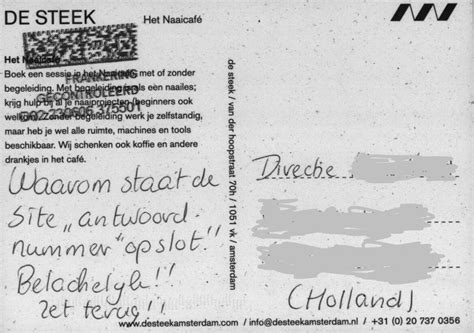 DE STEEK
Het Naaicafé
Het Naaicafé
Boek een sessie in het Naaicafé met of zonder
begeleiding. Met begeleiding als een naailes;
krijg hulp bij al je naaiprojecten (beginners ook
welkom). Zonder begeleiding werk je zelfstandig,
maar heb je wel alle ruimte, machines en tools
beschikbaar. Wij schenken ook koffie en andere
drankjes in het café.
FRANKERING
GECONTROLEERD
Waarom staat de
site „antwoord-
nummer" op slot!!
Belachelijk!!
Zet terug!!
de steek / van der hoopstraat 70h / 1051 vk / amsterdam
Directie
(Holland)
www.desteekamsterdam.com / info@desteekamsterdam.nl / +31 (0) 20 737 0356